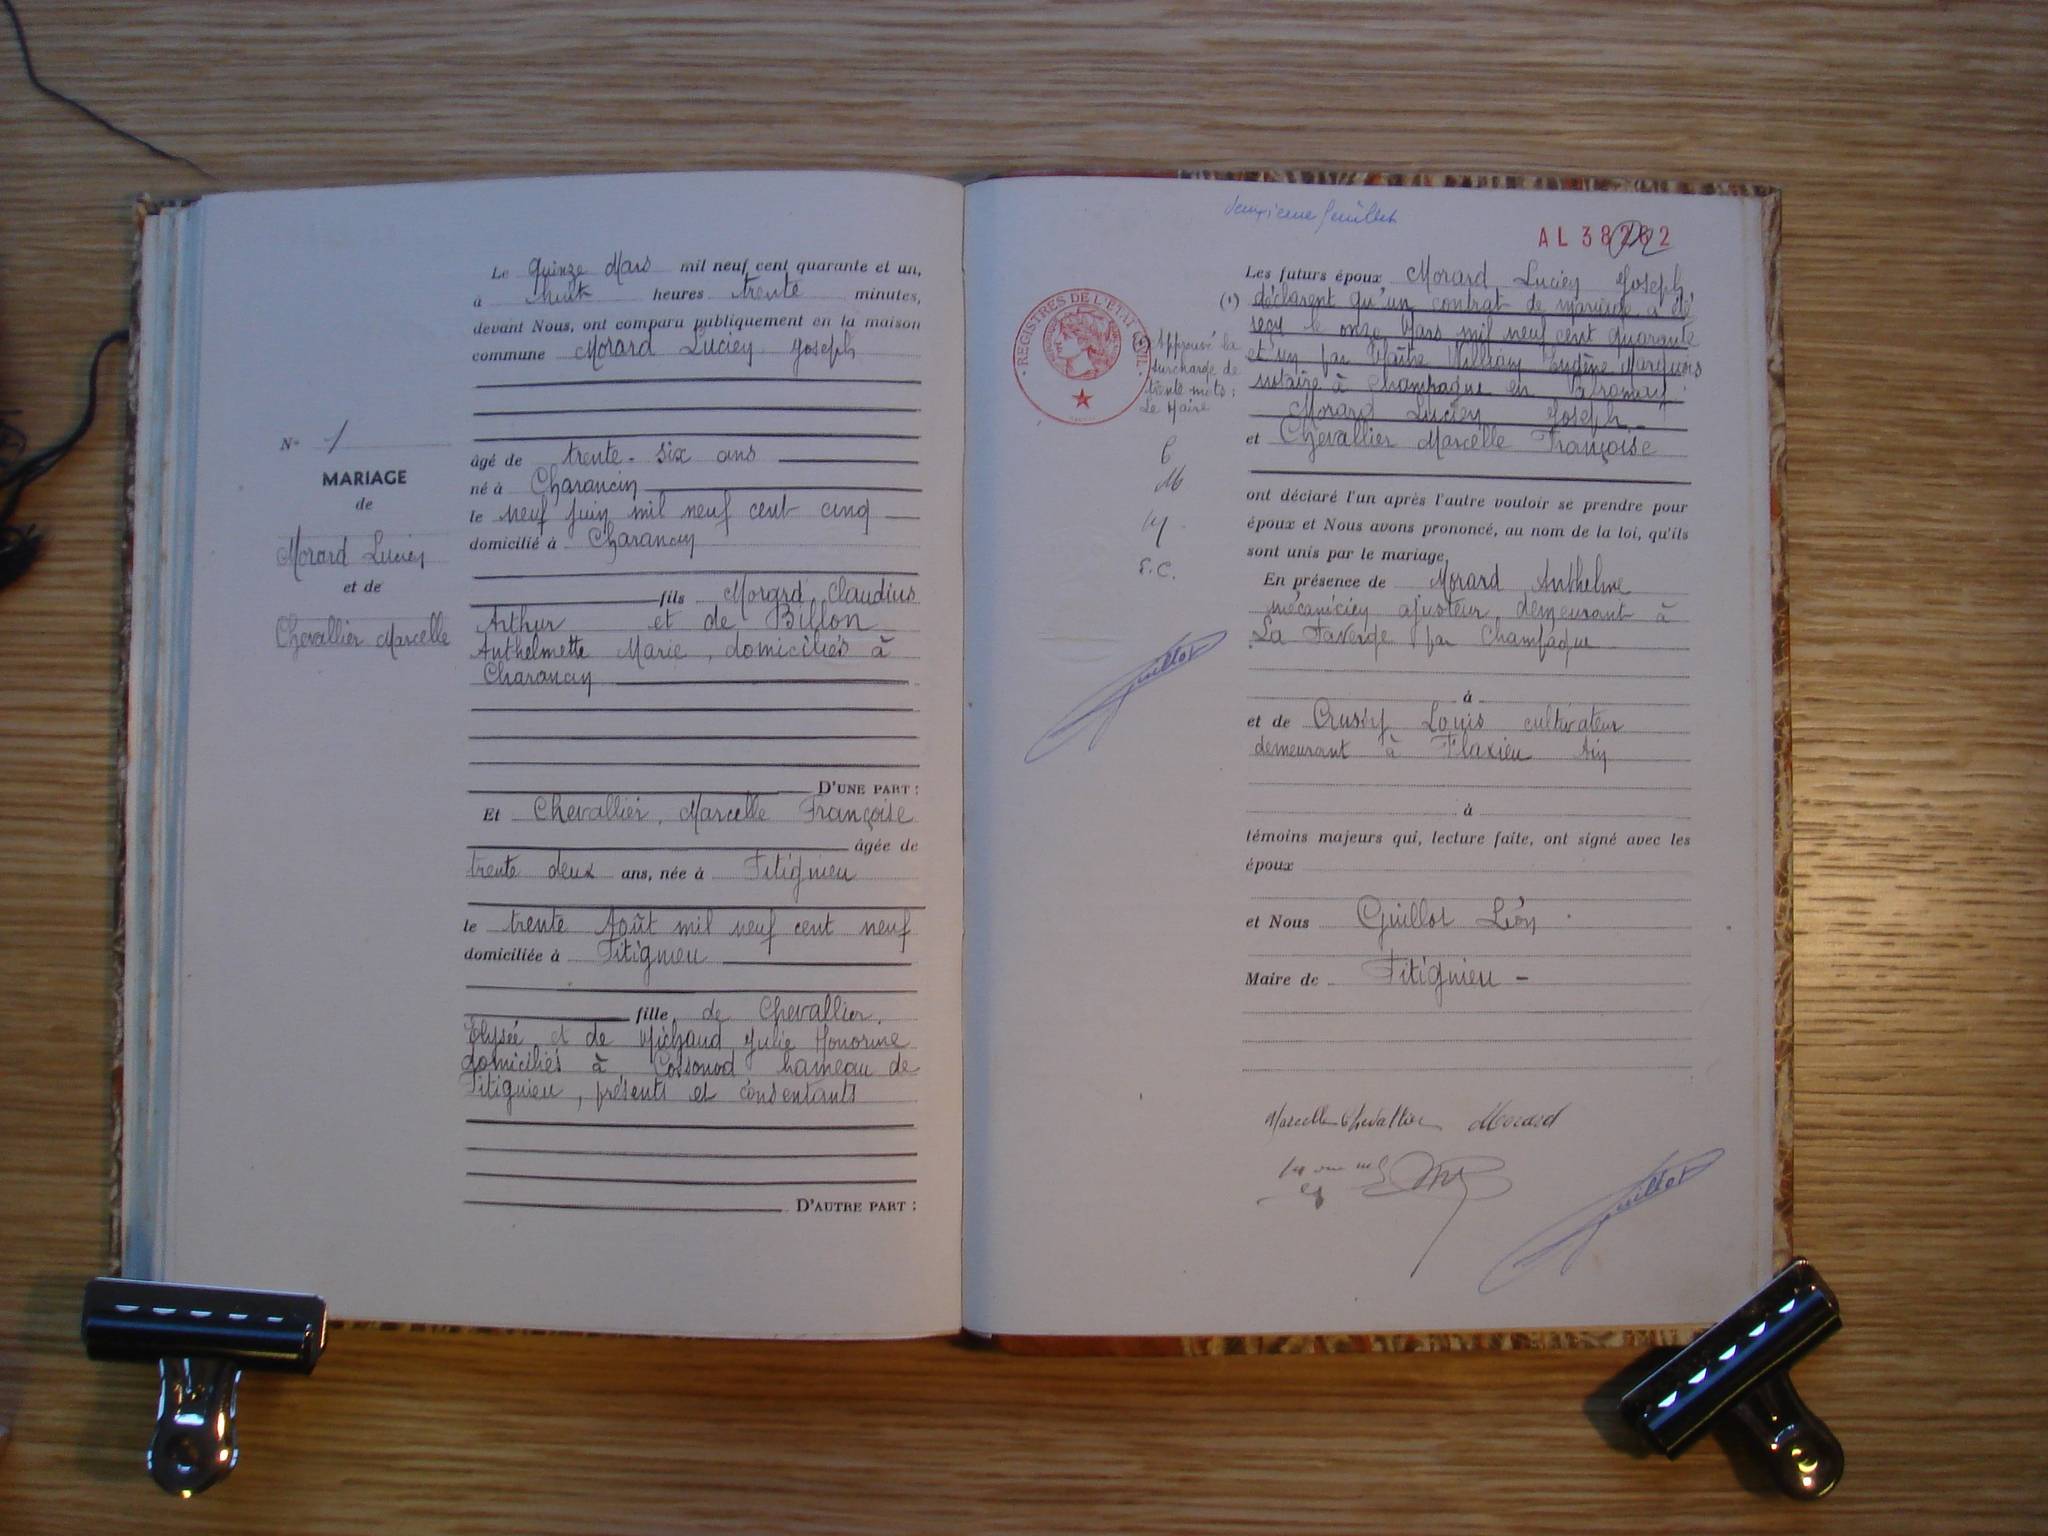 Le Quinze Mars mil neuf cent quarante et un,
à huit heures trente minutes,
devant Nous, ont comparu publiquement en la maison
commune Morard Lucien Joseph
N° 1
MARIAGE
de
Morard Lucien
et de
Chevallier Marcelle
âgé de trente-six ans
né à Charancin
le neuf Juin mil neuf cent cinq
domicilié à Charancin
fils Morard Claudius
Arthur et de Billon
Anthelmette Marie, domiciliés à
Charancin
D'UNE PART :
Et Chevallier, Marcelle Françoise
âgée de
trente deux ans, née à Fitignieu
le trente Août mil neuf cent neuf
domiciliée à Fitignieu
fille de Chevallier,
Elysée et de Michaud Julie Honorine
domiciliés à Cossonod hameau de
Fitignieu, présents et consentants
D'AUTRE PART :
deuxième feuillet
AL 38262
REGISTRES DE L'ÉTAT CIVIL
Les futurs époux Morard Lucien Joseph,
(1) déclarent qu'un contrat de mariage a été
reçu le onze Mars mil neuf cent quarante
et un par Maître William Eugène Marquis
notaire à Champagne en Valromey
Morard Lucien Joseph
et Chevallier Marcelle Françoise
(1) Approuvé la
surcharge de
trente mots :
Le Maire
M
E.C.
Guillot
ont déclaré l'un après l'autre vouloir se prendre pour
époux et Nous avons prononcé, au nom de la loi, qu'ils
sont unis par le mariage.
En présence de Morard Anthelme
mécanicien ajusteur demeurant à
La Taverge par Champagne
à
et de Crussy Louis cultivateur
demeurant à Flaxieu Ain
à
témoins majeurs qui, lecture faite, ont signé avec les
époux
et Nous Guillot Léon
Maire de Fitignieu -
Marcelle Chevallier Morard
Guillot